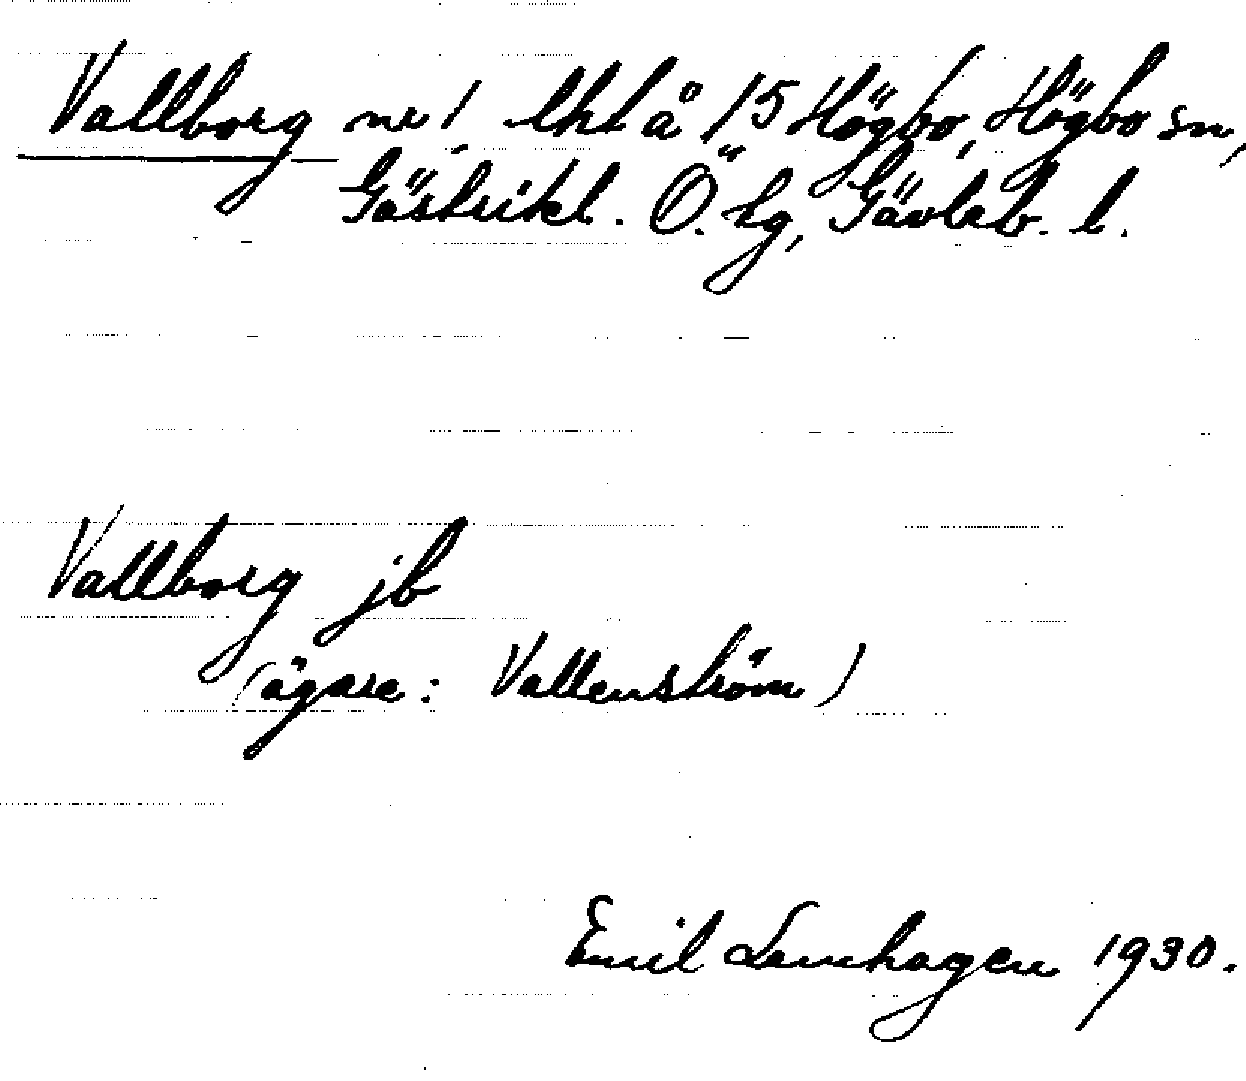 Vallborg nr 1 lht å 15 Högbo, Högbo sn,
Gästrikl. Ö. tg, Gävleb. l.
Vallborg jb
(ägare: Vallenström)
Emil Lamhagen 1930.